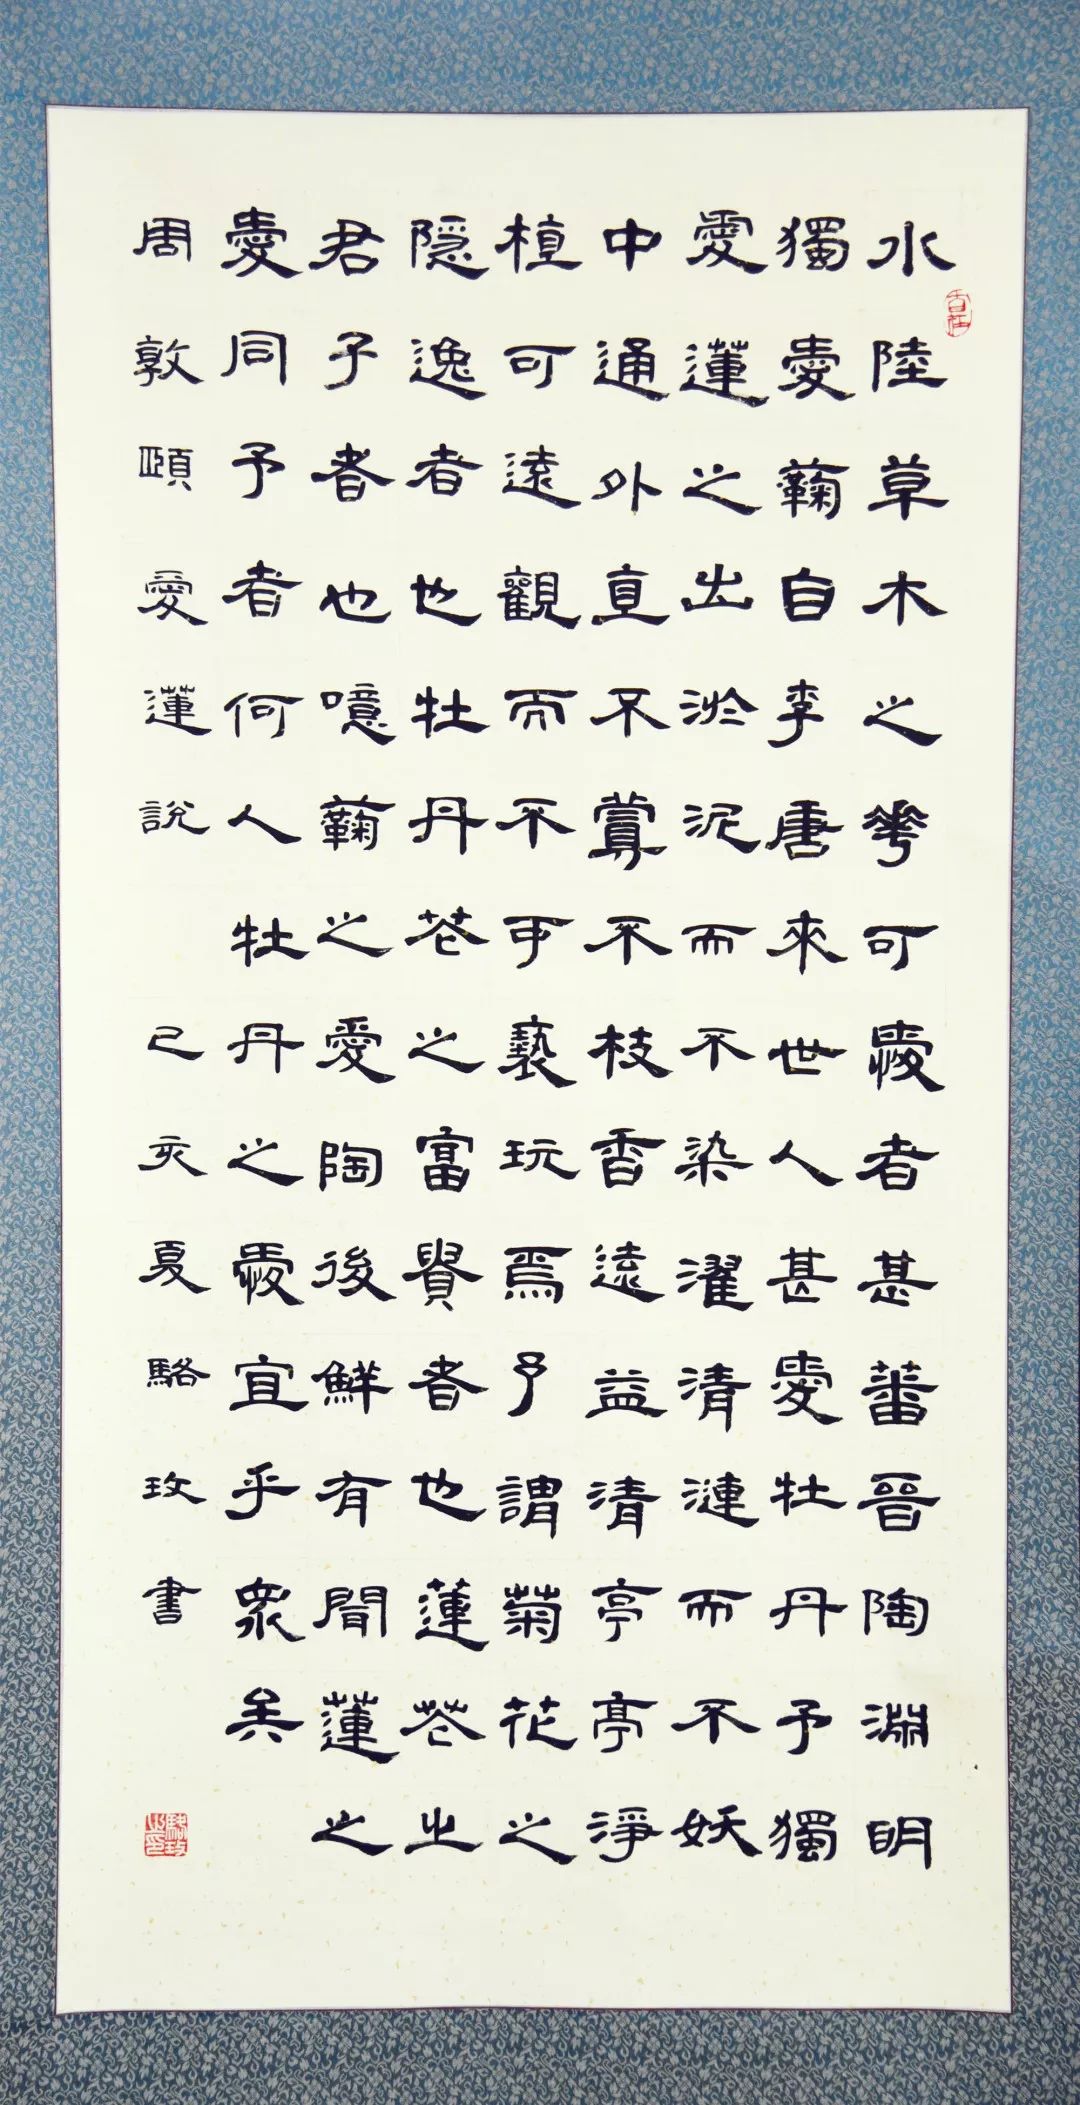 水陸草木之華可愛者甚蕃晉陶淵明
獨愛蘜自李唐來世人甚愛牡丹予獨
愛蓮之出淤泥而不染濯清漣而不妖
中通外直不蔓不枝香遠益清亭亭淨
植可遠觀而不可褻玩焉予謂菊花之
隱逸者也牡丹花之富貴者也蓮花之
君子者也噫蘜之愛陶後鮮有聞蓮之
愛同予者何人牡丹之愛宜乎眾矣
周敦頤愛蓮說 己亥夏駱玫書
駱玫之印